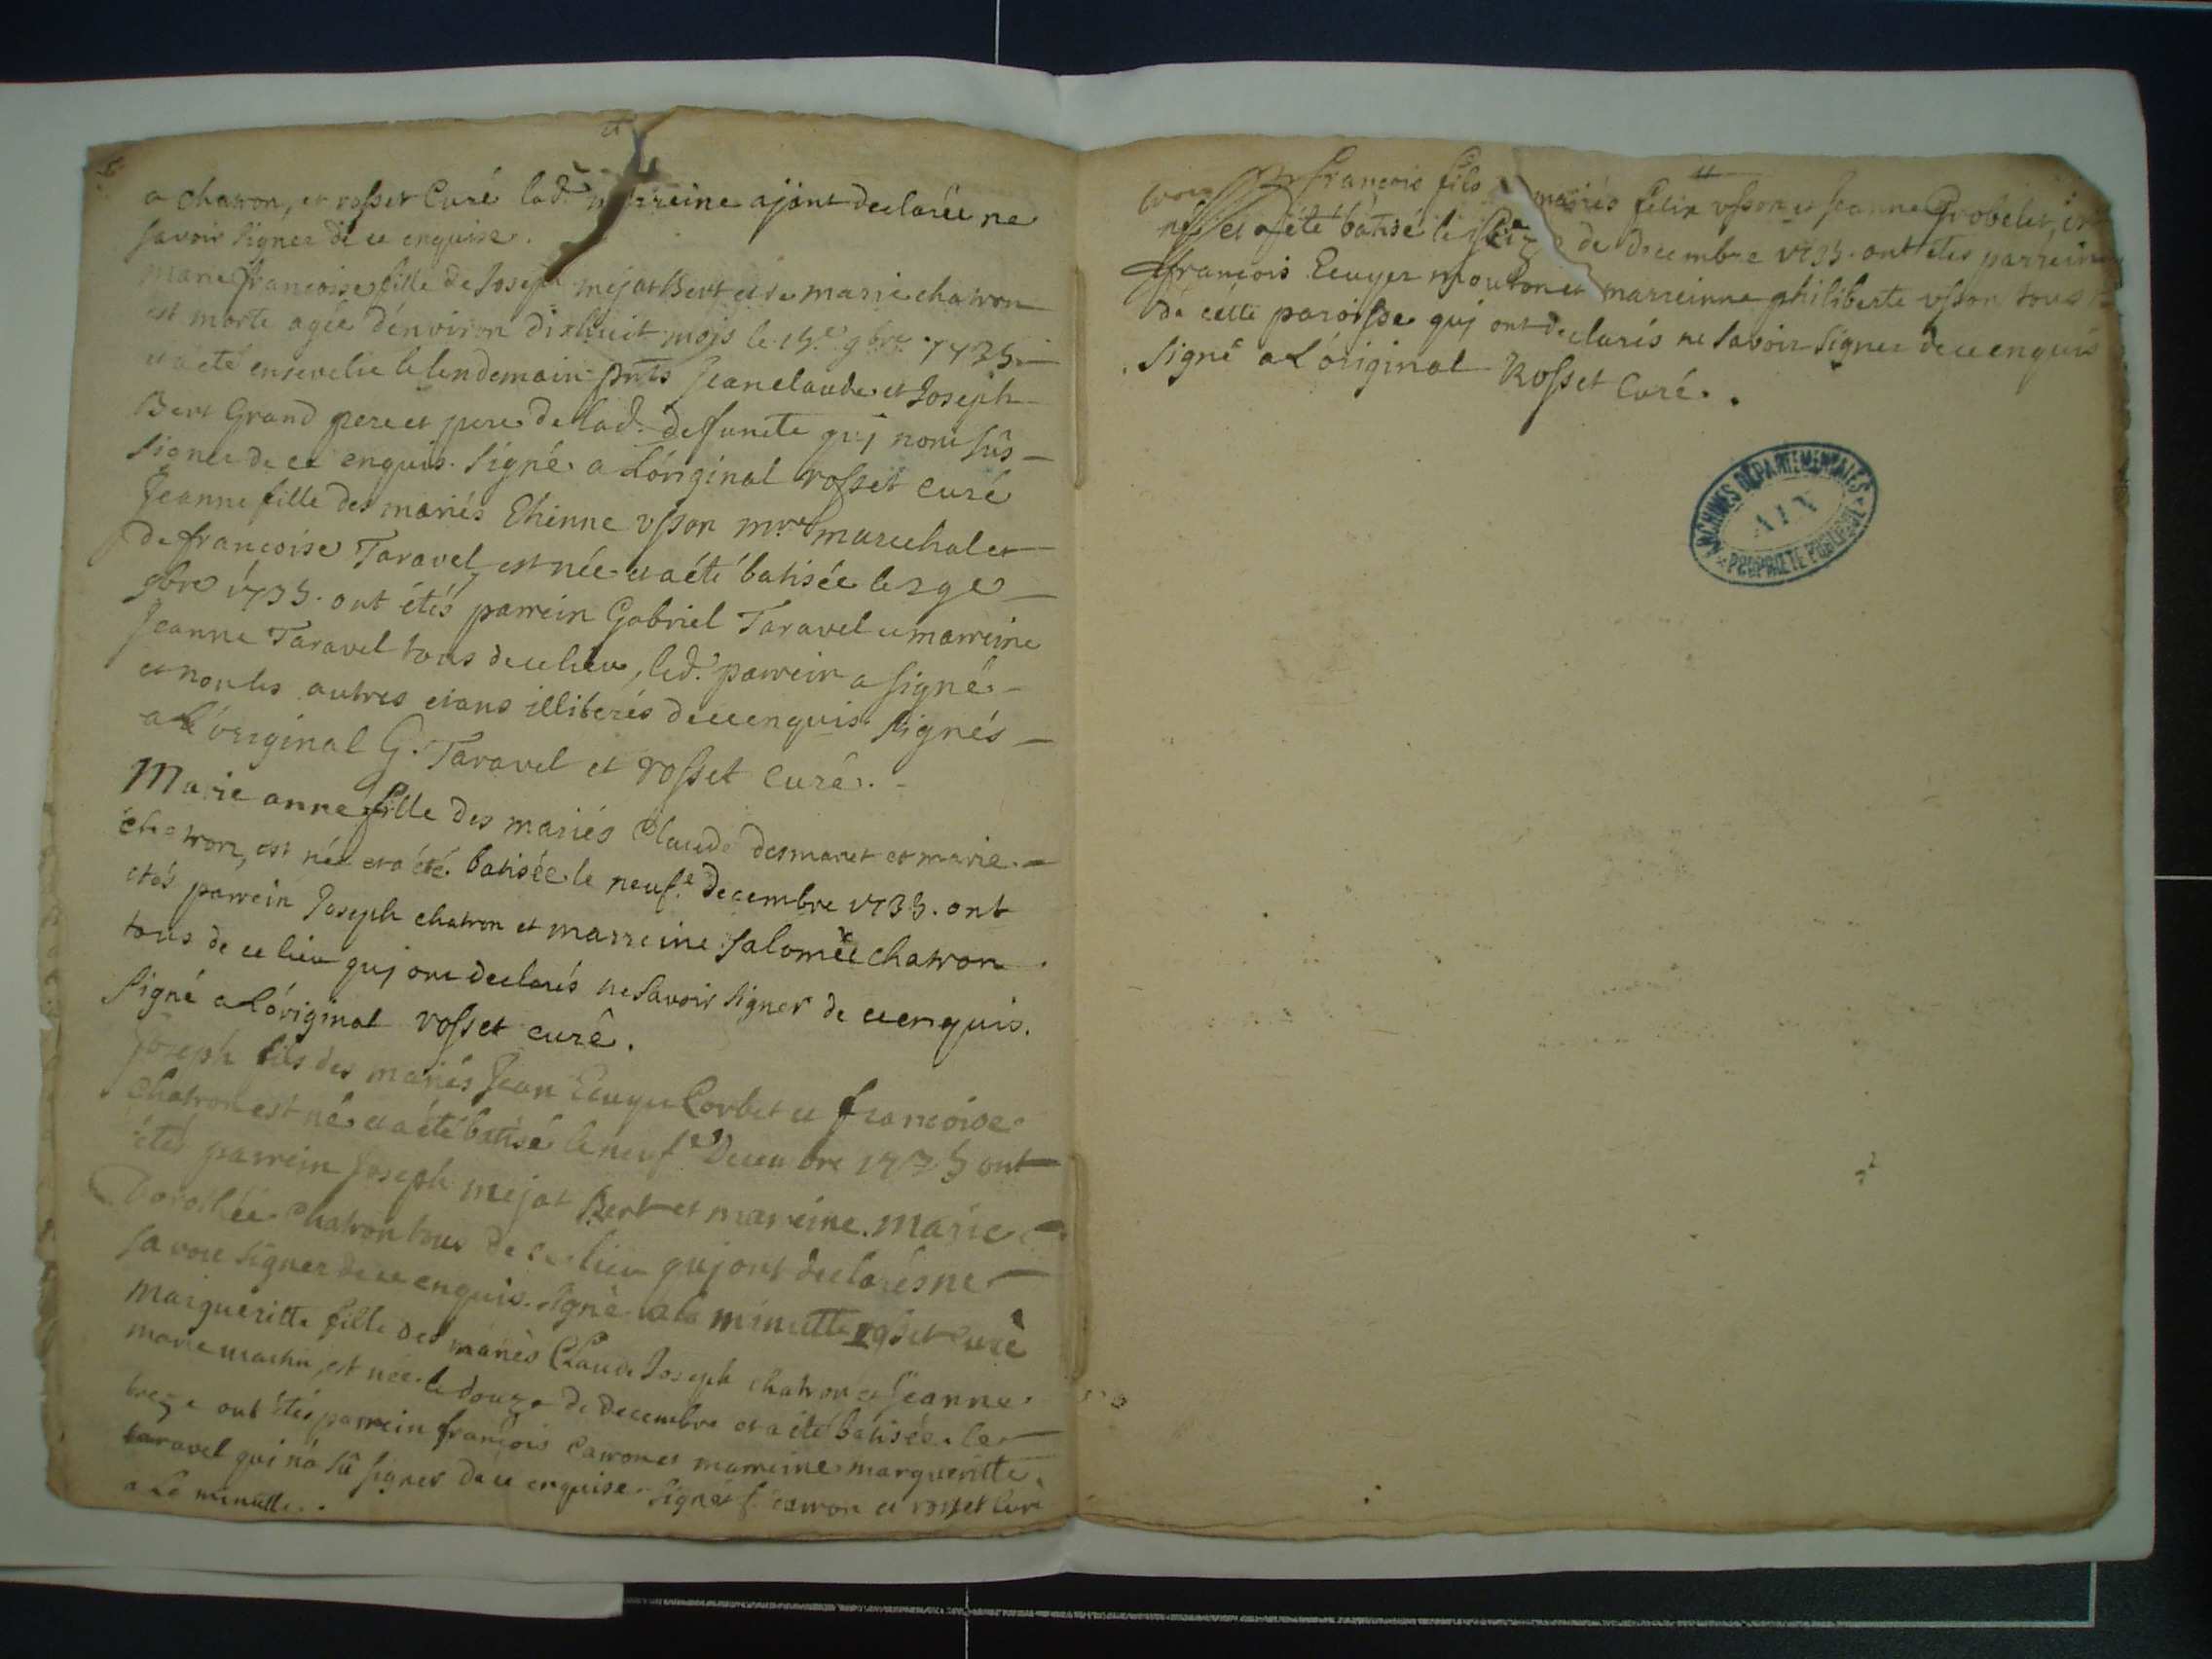 a chatron, et rosset Curé lad. marreine ajant declarée ne
savoir signer de ce enquise.
marie francoise fille de Joseph mejat Bert et de marie chatron
est morte agée d'environ dixhuit mois le 15.e 9bre 1735
et a été ensevelie le lendemain pnts Jean claude et Joseph
Bert Grand pere et pere de lad. defuncte quj nont sús
signer de ce enquis. signé a L'original rosset curé
Jeanne fille des mariés Ehienne vsson mre marechal et
de francoise Taravel est née et a été batisée le 29e
9bre 1735. ont étés parrein Gabriel Taravel et marreine
Jeanne Taravel tous de ce lieu, led. parrein a signé
et non les autres etans illiterés de ce enquis signés
a L'original G. Taravel et rosset curé.
Marie anne fille des mariés Claude desmaret et marie
chatron, est née et a été batisée le neuf.e decembre 1735. ont
etés parrein Joseph chatron et marreine salomée chatron
tous de ce lieu quj ont declarés ne savoir signer de ce enquis.
signé a L'original rosset curé.
Joseph fils des mariés Jean Ecuyer Corbet et francoise
Chatron est né et a été batisé le neuf.e Decembre 1735 ont
étés parrein Joseph mejat Bert et mareine marie
Dorothée Chatron tous de ce lieu quj ont declarés ne
savoir signer de ce enquis. signé a la minutte rosset curé
marguéritte fille des mariés Claude Joseph chatron et Jeanne
marie machu, est née le douze de decembre et a été batisée le
treze ont étés parrein francois Carron et marreine margueritte
taravel qui n'a sû signer de ce enquise signés f. carron et rosset curé
a La minutte.
francois fils mariés felix vsson et Jeanne Grobelet, est
né et a été batisé le de decembre 1735. ont étés parrein
francois Ecuyer mouton et marreinne philiberte vsson tous
de cette paroisse quj ont declarés ne savoir signer de ce enquis
signé a L'original Rosset Curé.
ARCHIVES DEPARTEMENTALES
AIN
PROPRIETE PUBLIQUE